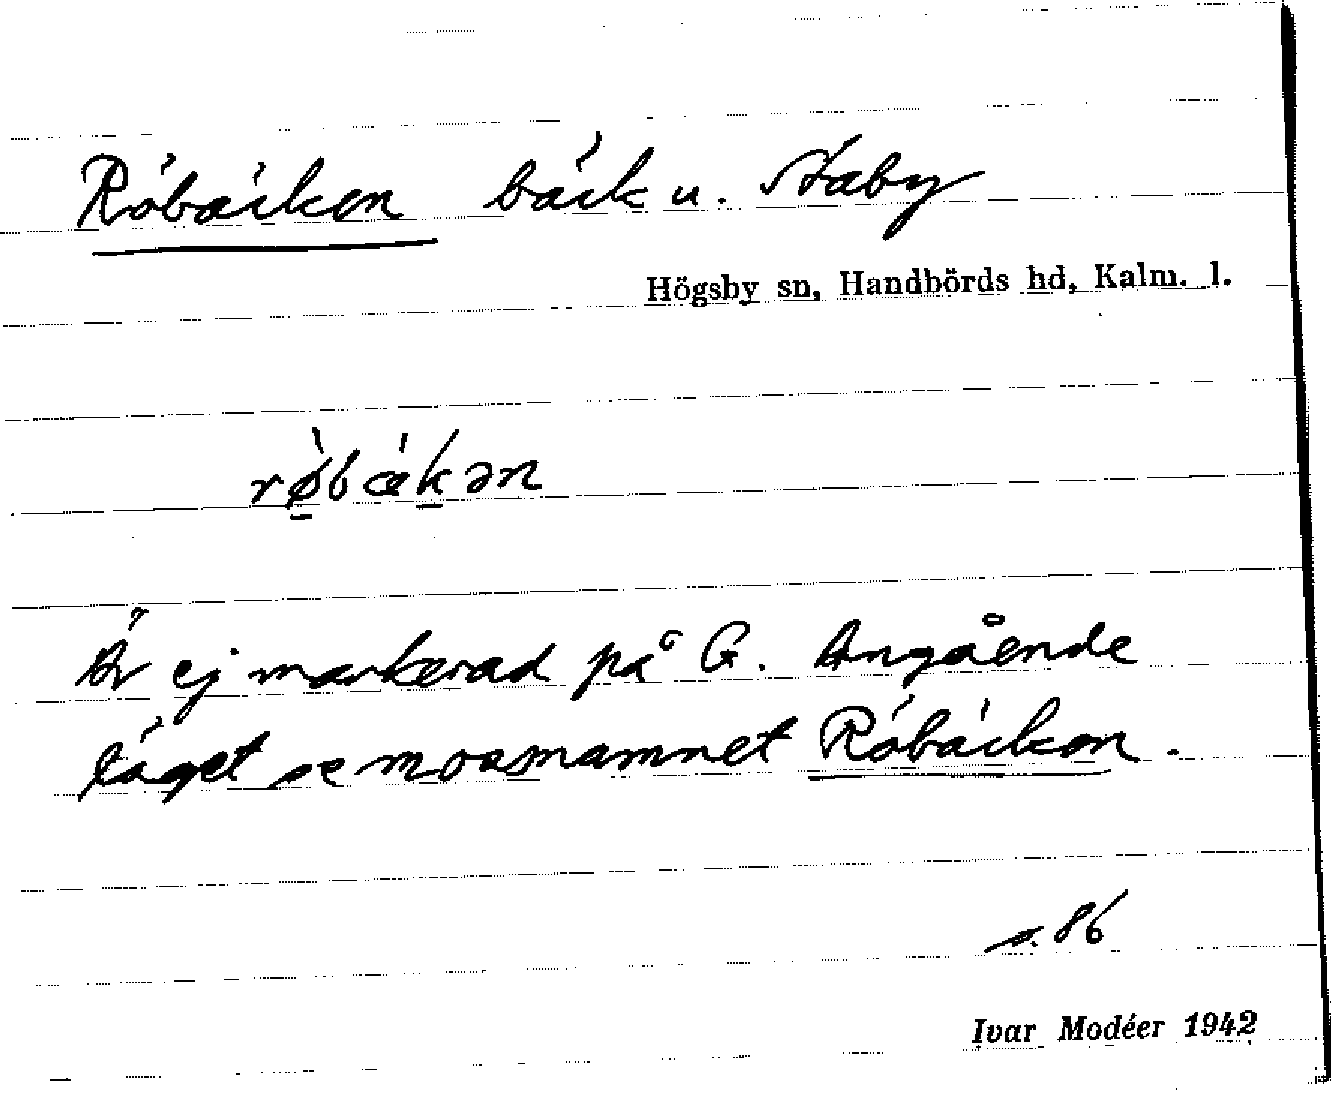 Röbäcken bäck u. Staby
Högsby sn, Handbörds hd, Kalm. l.
rø̀bæ̀kən
Är ej markerad på G. Angående
läget se mossnamnet Röbäcken.
s. 86
Ivar Modéer 1942